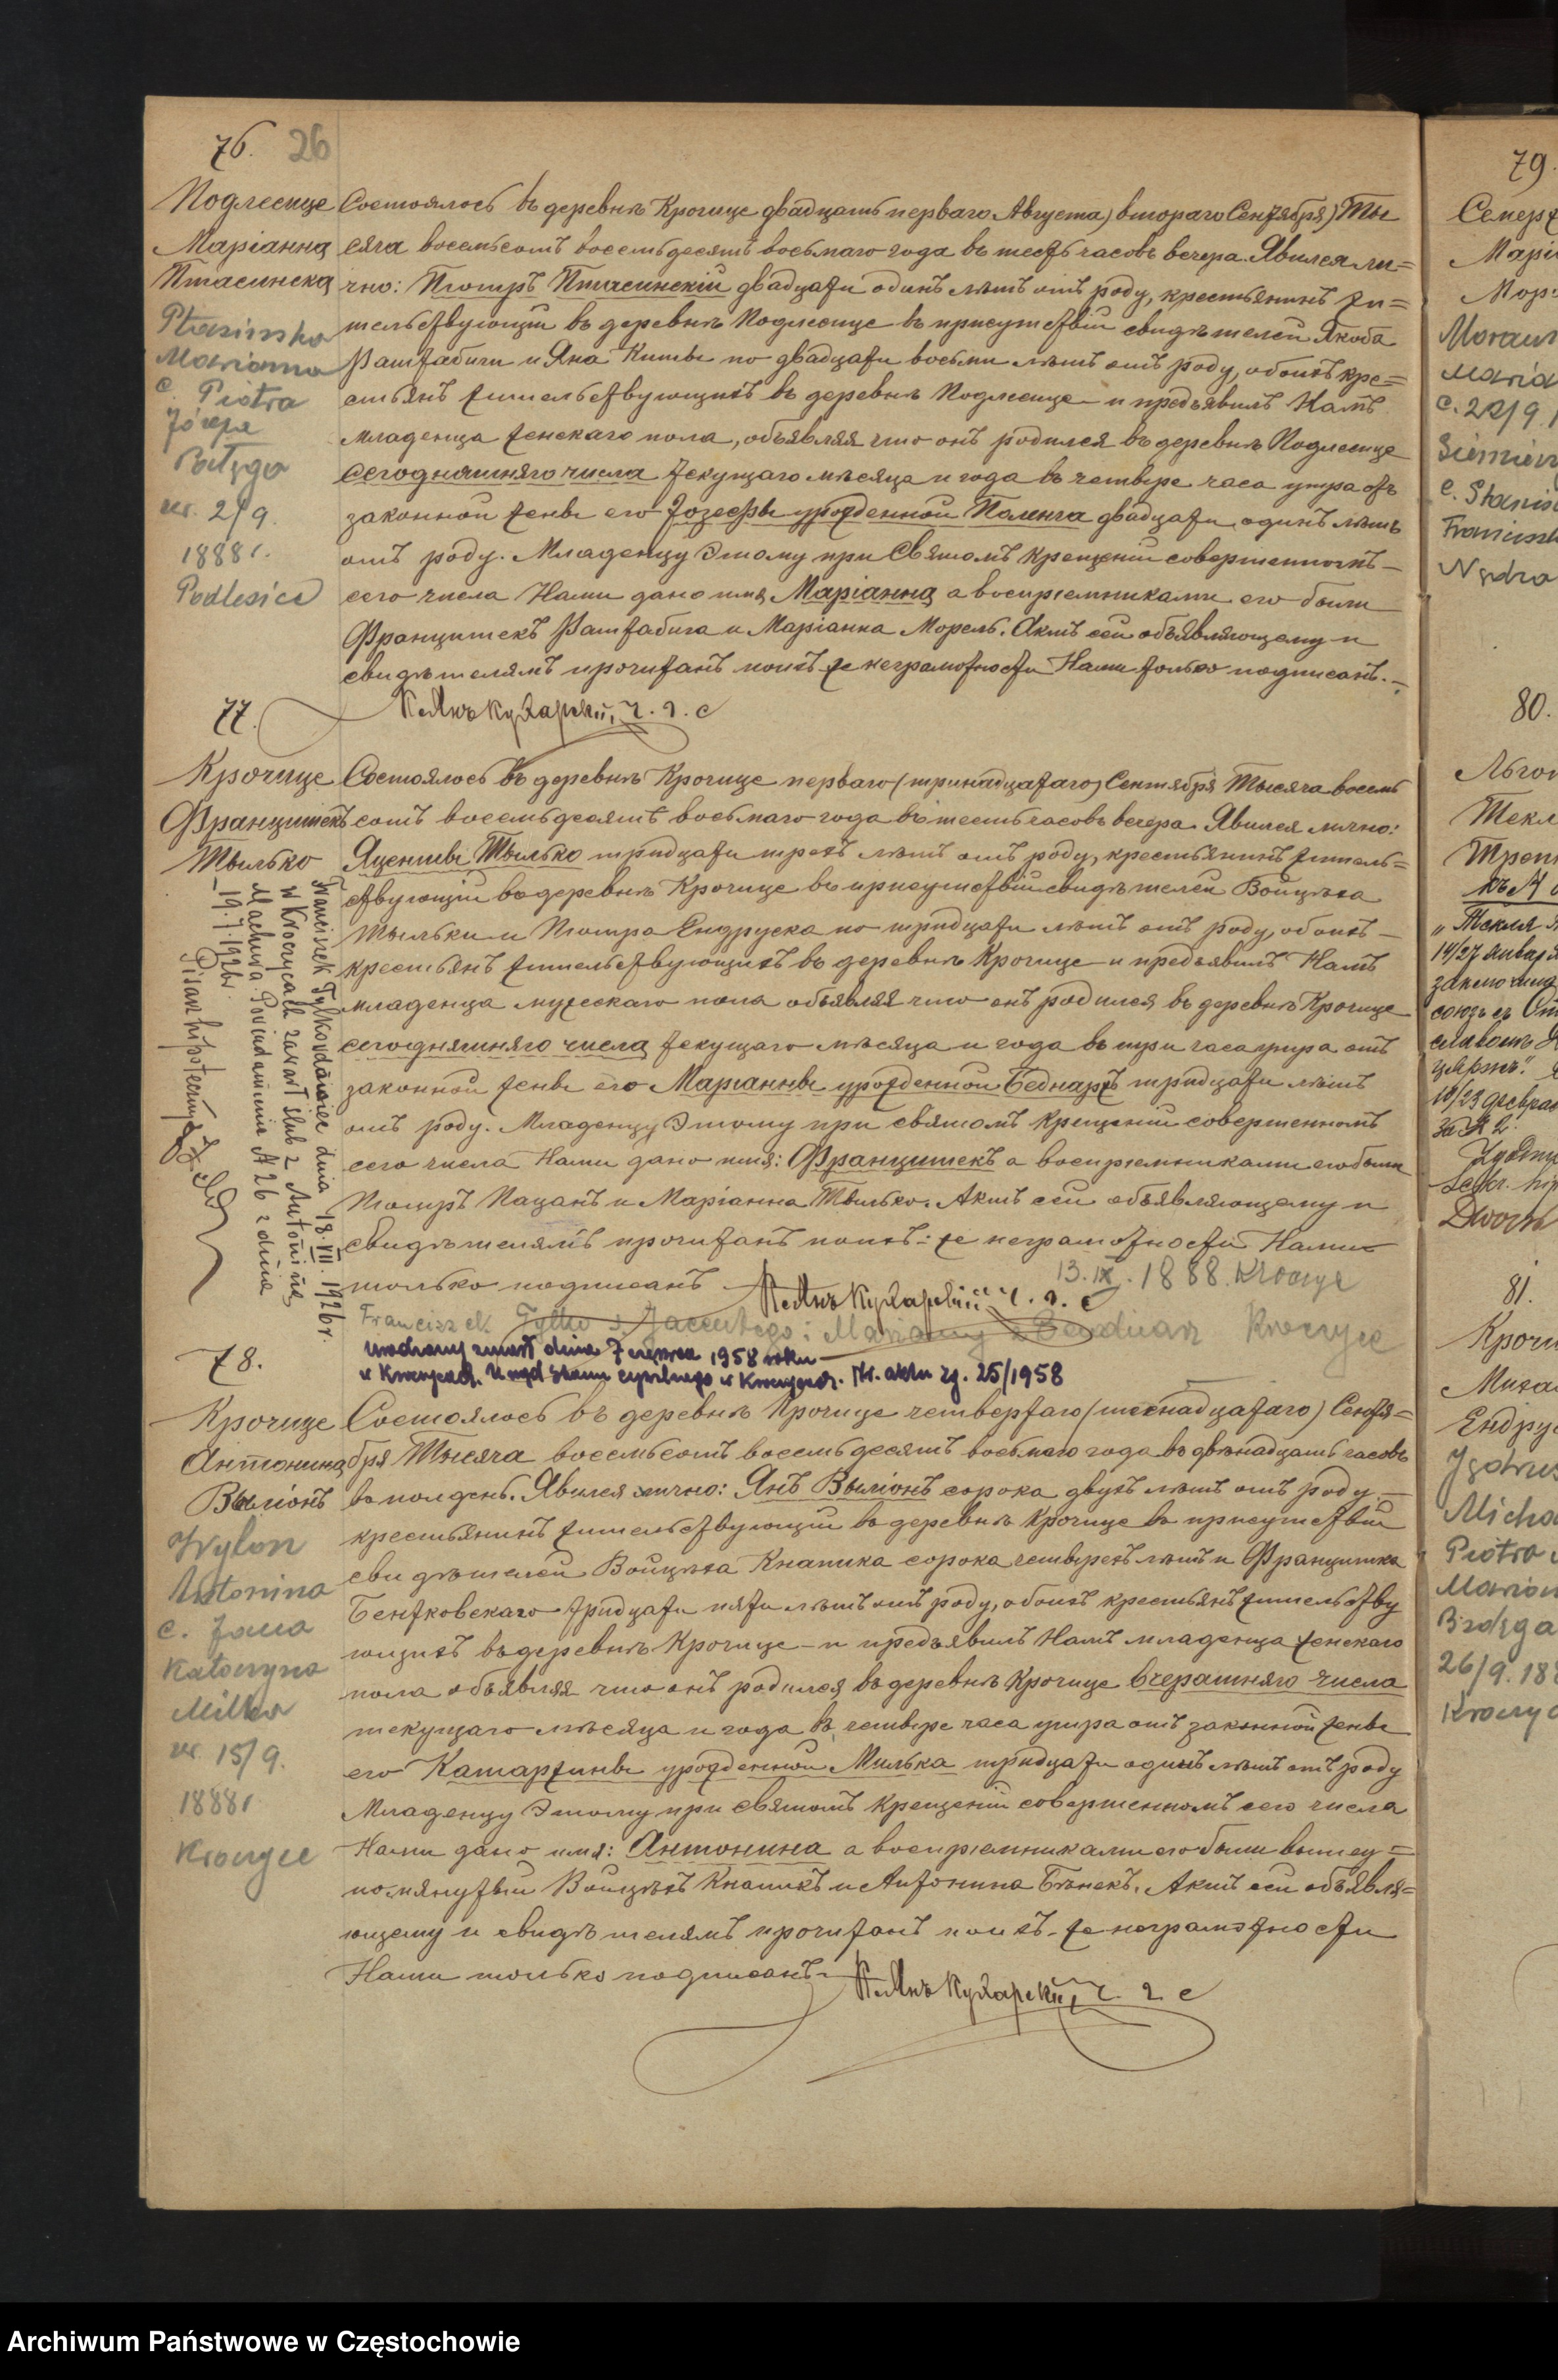 76. 26
Подлесице
Маріанна
Птасинска
Ptasinska
Marianna
c. Piotra
Józefa
w. 2/9.
1888 r.
Podlesice
Состоялось въ деревнѣ Крочице двадцать перваго Августа) втораго Сентября) Ты
сяча восемьсотъ восемьдесятъ восьмаго года въ шесть часовъ вечера. Явился ли=
чно: Піотръ Птасинскій двадцати одинъ лѣтъ отъ роду, крестьянинъ жи=
тельствующій въ деревнѣ Подлесице въ присутствіи свидѣтелей Якоба
и Яна Киты по двадцати восьми лѣтъ отъ роду, обоихъ кре=
стьянъ жительствующихъ въ деревнѣ Подлесице и предъявилъ Намъ
младенца женскаго пола, объявляя что онъ родился въ деревнѣ Подлесице
сегодняшняго числа текущаго мѣсяца и года въ четыре часа утра отъ
законной жены его Іозефы урожденной двадцати одинъ лѣтъ
отъ роду. Младенцу этому при Святомъ Крещеніи совершенномъ
сего числа Нами дано имя Маріанна а воспріемниками его были
Францишекъ и Маріанна Морель. Актъ сей объявляющему и
свидѣтелямъ прочитанъ поихъ же неграмотности Нами только подписанъ.
Кс. Янъ Кухарскій, ч. г. с
77.
Крочице
Францишекъ
Тылько
Franciszek Tylko dnia 18.VII.1926 r.
w Kroczycach zawarł ślub z Antoniną
Machura. Powiadomienie N 26 z dnia
19.7.1926 r.
Pisarz hipoteczny
Состоялось въ деревнѣ Крочице перваго (тринадцатаго) Сентября Тысяча восемь
сотъ восемьдесятъ восьмаго года въ шесть часовъ вечера. Явился лично:
Яценты Тылько тридцати трехъ лѣтъ отъ роду, крестьянинъ житель=
ствующій въ деревнѣ Крочице въ присутствіи свидѣтелей Войцѣха
Тыльки и Піотра Ендруска по тридцати лѣтъ отъ роду, обоихъ
крестьянъ жительствующихъ въ деревнѣ Крочице и предъявилъ Намъ
младенца мужескаго пола объявляя что онъ родился въ деревнѣ Крочице
сегодняшняго числа текущаго мѣсяца и года въ три часа утра отъ
законной жены его Маріанны урожденной Беднаржъ тридцати лѣтъ
отъ роду. Младенцу этому при святомъ Крещеніи совершенномъ
сего числа Нами дано имя: Францишекъ а воспріемниками его были
Піотръ Пацанъ и Маріанна Тылько. Актъ сей объявляющему и
свидѣтелямъ прочитанъ поихъ же неграмотности Нами
только подписанъ Кс. Янъ Кухарскій ч. г. с
13. IX. 1888. Kroczyce
Franciszek Tylko s. Jacentego i Marianny z Bednarz Kroczyce
urodzony zmarł dnia 7 czerwca 1958 roku
w Kroczycach. Urząd Stanu cywilnego w Kroczycach. Nr. aktu zg. 25/1958
78.
Крочице
Антонина
Выліонъ
Wylon
Antonina
c. Jana
Katarzyna
Milka
w. 15/9.
1888 r
Kroczyce
Состоялось въ деревнѣ Крочице четвертаго (шестнадцатаго) Сентя=
бря Тысяча восемьсотъ восемьдесятъ восьмаго года въ двѣнадцать часовъ
въ полдень. Явился лично: Янъ Выліонъ сорока двухъ лѣтъ отъ роду
крестьянинъ жительствующій въ деревнѣ Крочице въ присутствіи
свидѣтелей Войцѣха Кнапика сорока четырехъ лѣтъ и Францишка
Бентковскаго тридцати пяти лѣтъ отъ роду, обоихъ крестьянъ жительству
ющихъ въ деревнѣ Крочице и предъявилъ Намъ младенца женскаго
пола объявляя что онъ родился въ деревнѣ Крочице вчерашняго числа
текущаго мѣсяца и года въ четыре часа утра отъ законной жены
его Катаржины урожденной Милька тридцати одинъ лѣтъ отъ роду
Младенцу этому при святомъ Крещеніи совершенномъ сего числа
Нами дано имя: Антонина а воспріемниками его были вышеу=
помянутый Войцѣхъ Кнапикъ и Антонина Бѣнекъ. Актъ сей объявля=
ющему и свидѣтелямъ прочитанъ поихъ же неграмотности
Нами только подписанъ. Кс. Янъ Кухарскій, ч. г. с
79.
Марі
Мор
maria
c. 22/9.
c. Stanis
Franciszk
80.
Текл
"Текля
14/27 января
81.
Кроч
Ендру
Jędrus
Micha
Piotra
Marian
26/9. 188
Kroczyc
Archiwum Państwowe w Częstochowie